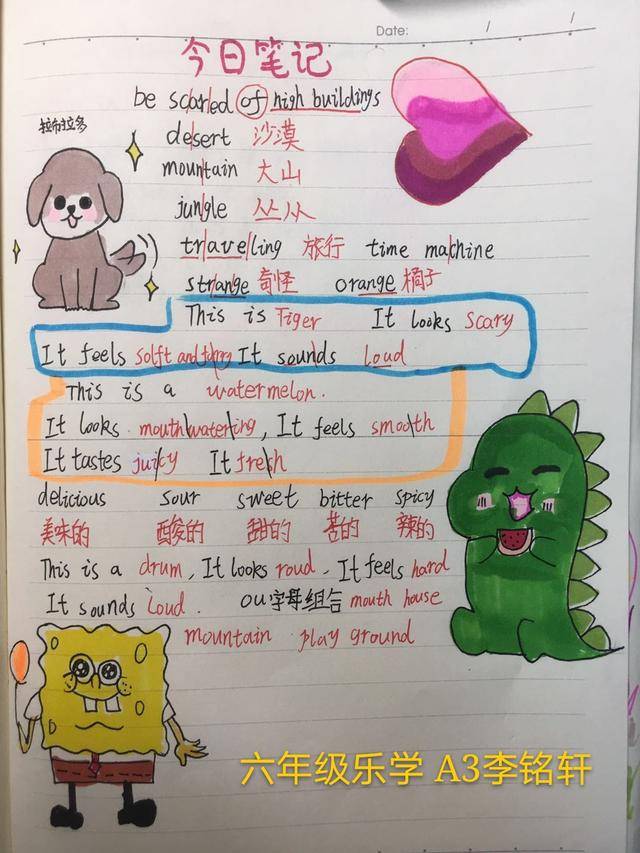 Date: / /
今日笔记
be scared of high buildings
拉布拉多
desert 沙漠
mountain 大山
jungle 丛从
traveling 旅行 time machine
strange 奇怪 orange 橘子
This is Tiger It looks scary
It feels solft and It sounds loud
This is a watermelon.
It looks mouthwatering, It feels smooth
It tastes juicy It fresh
delicious sour sweet bitter spicy
美味的 酸的 甜的 苦的 辣的
This is a drum, It looks roud, It feels hard
It sounds loud. ou字母组合 mouth house
mountain play ground
六年级乐学 A3李铭轩